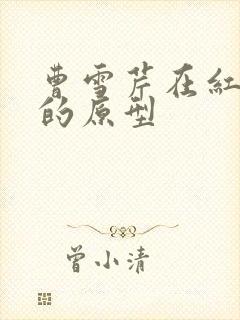 曹雪芹在紅
的原型
曾小清